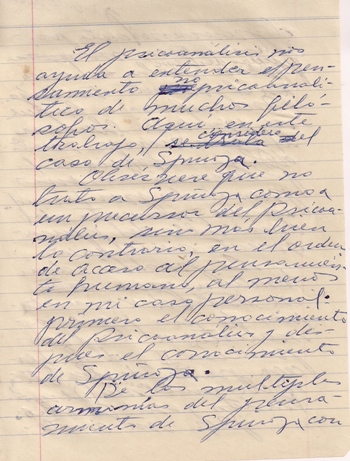 El psicoanálisis nos
ayuda a entender el pen-
samiento no psicoanalí-
tico de muchos filó-
sofos. Aquí, en este
trabajo, considero el
caso de Spinoza.
Obsérvese que no
trato a Spinoza como a
un precursor del psicoa-
nálisis, sino más bien
lo contrario, en el orden
de acceso del pensamien-
to humano, al menos
en mi caso personal.
Primero el conocimiento
del psicoanálisis y des-
pués el conocimiento
de Spinoza.
De las múltiples
armonías del pensa-
miento de Spinoza con